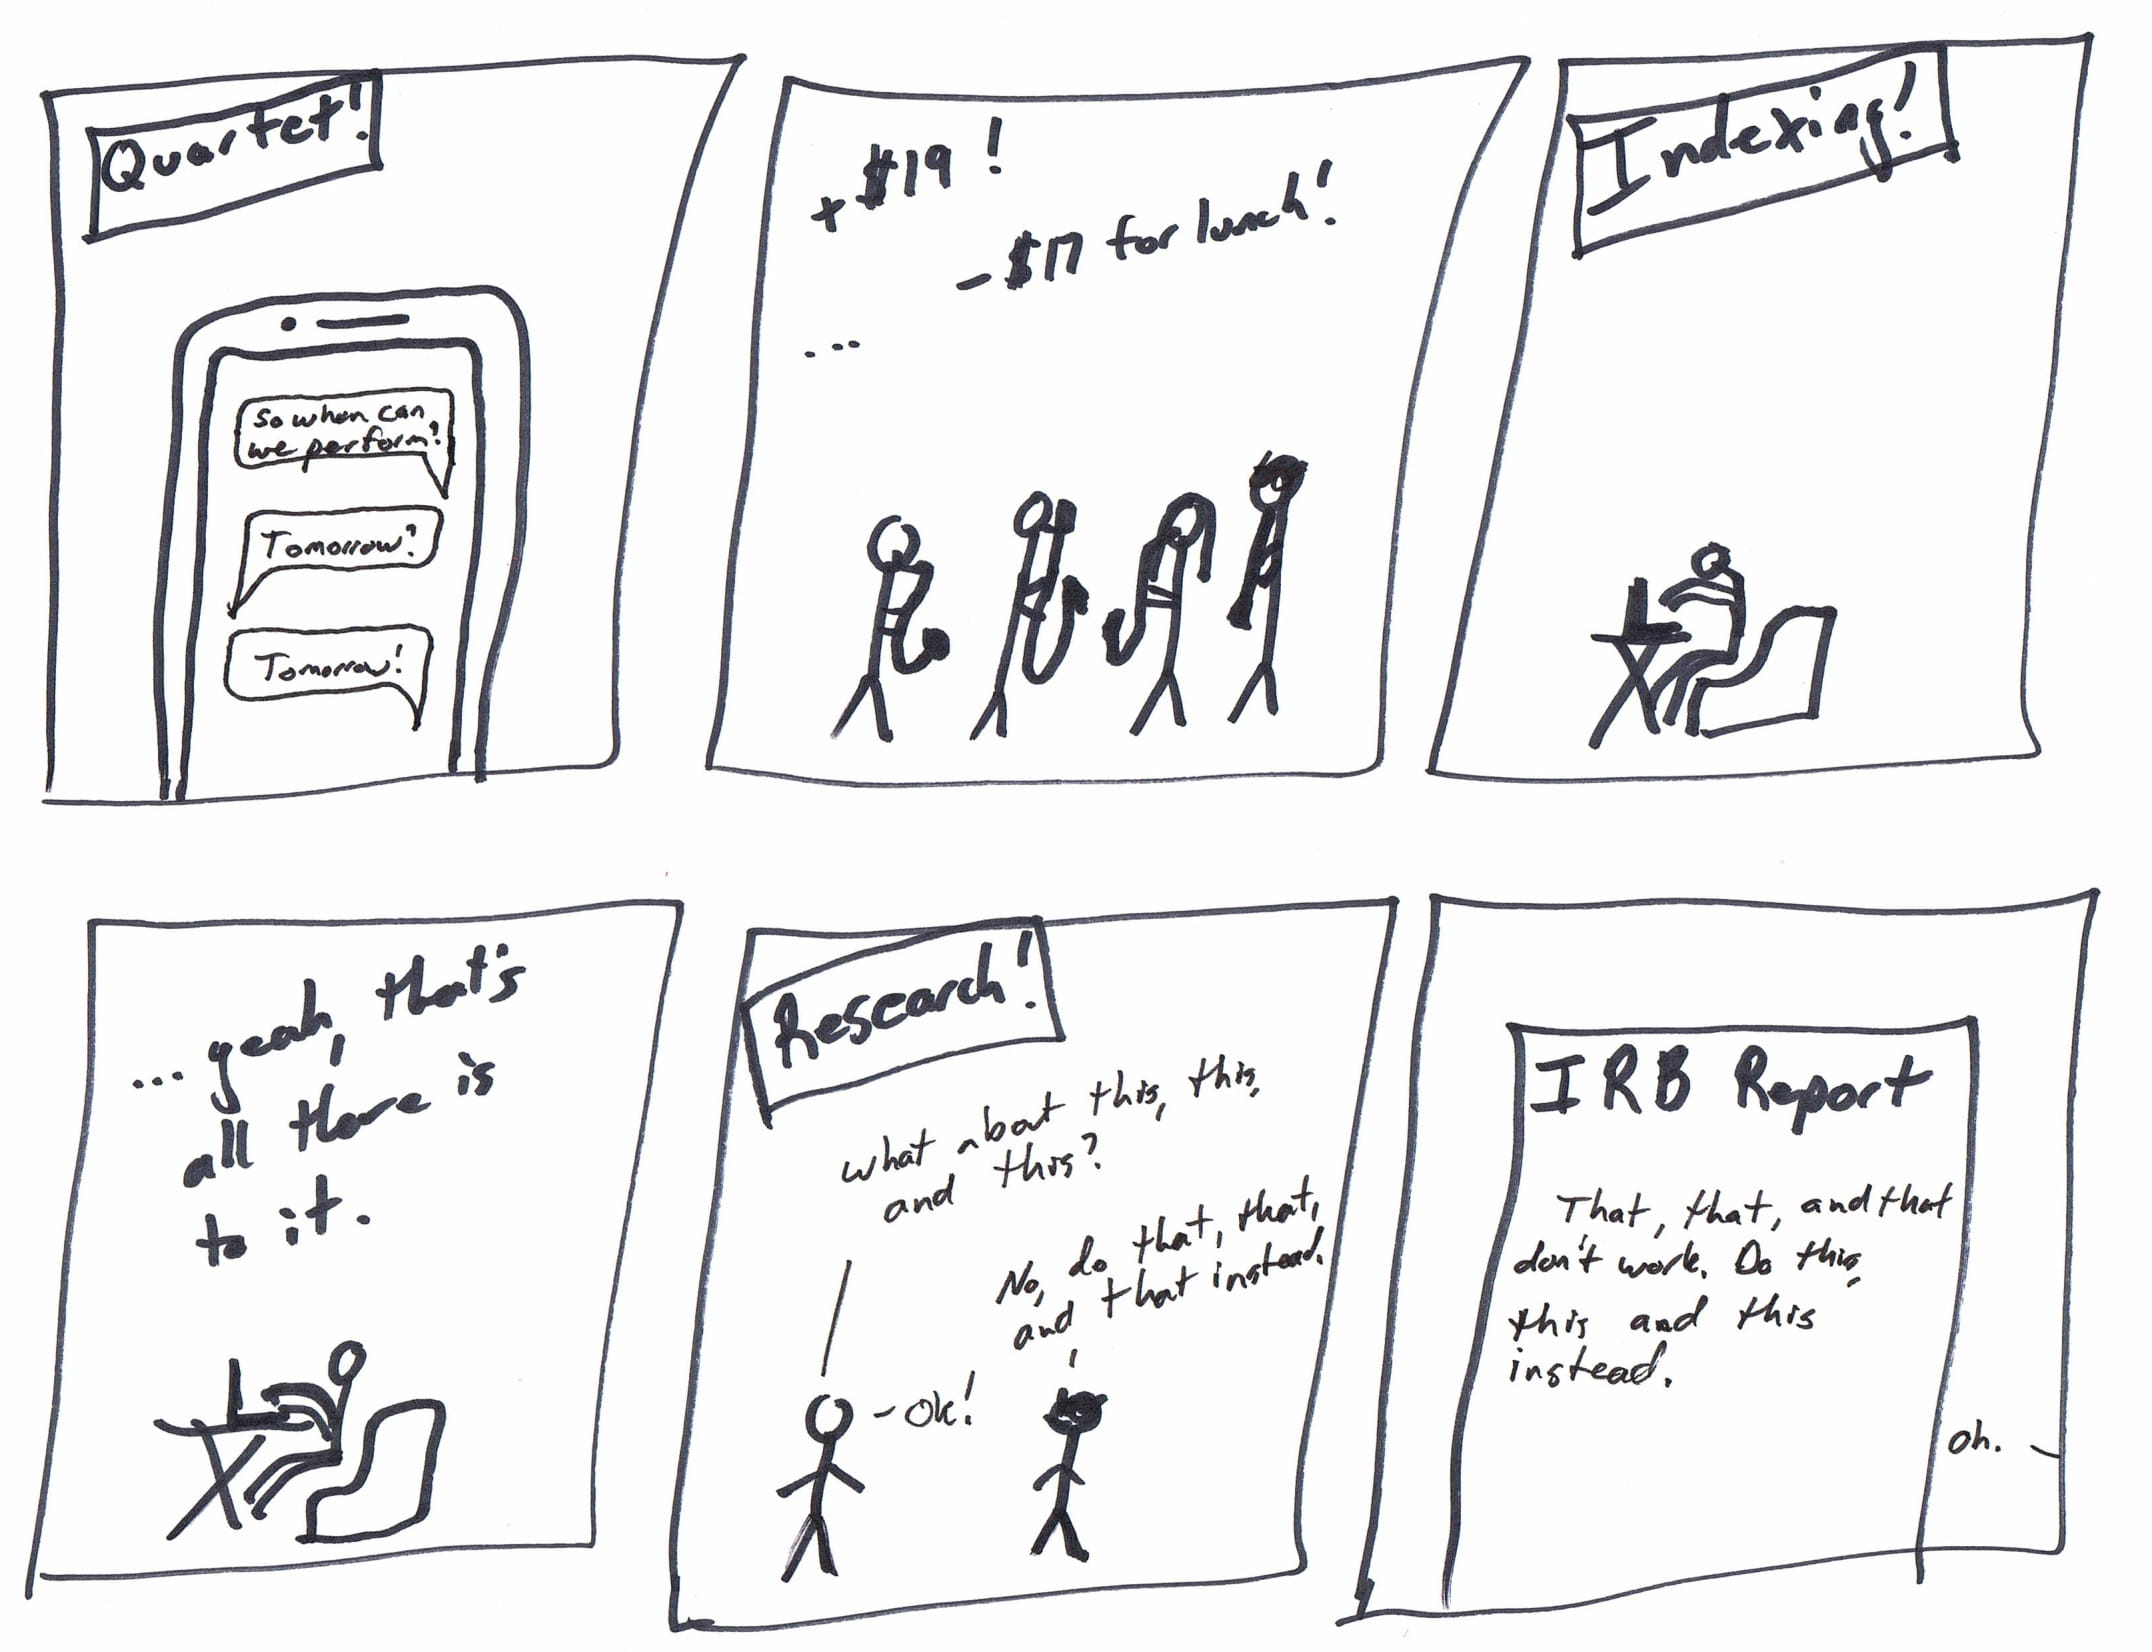 Quartet!
So when can
we perform?
Tomorrow?
Tomorrow!
+$19!
-$17 for lunch!
...
Indexing!
...yeah, that's
all there is
to it.
Research!
What about this, this,
and this?
No, do that, that,
and that instead.
-Ok!
IRB Report
That, that, and that
don't work. Do this,
this and this
instead.
Oh.